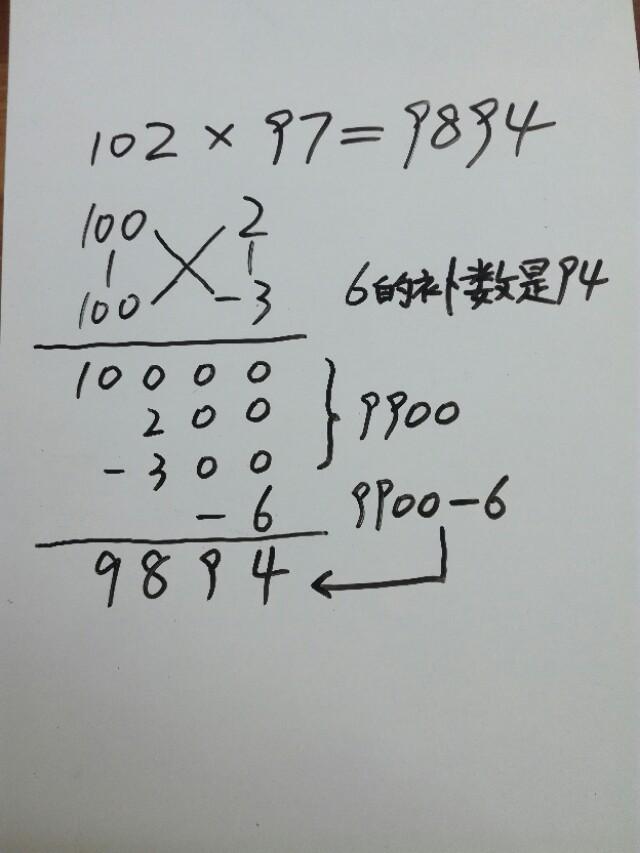 102 × 97 = 9894
100 2
100 -3
6的补数是94
10000
200
-300
9900
-6
9900-6
9894